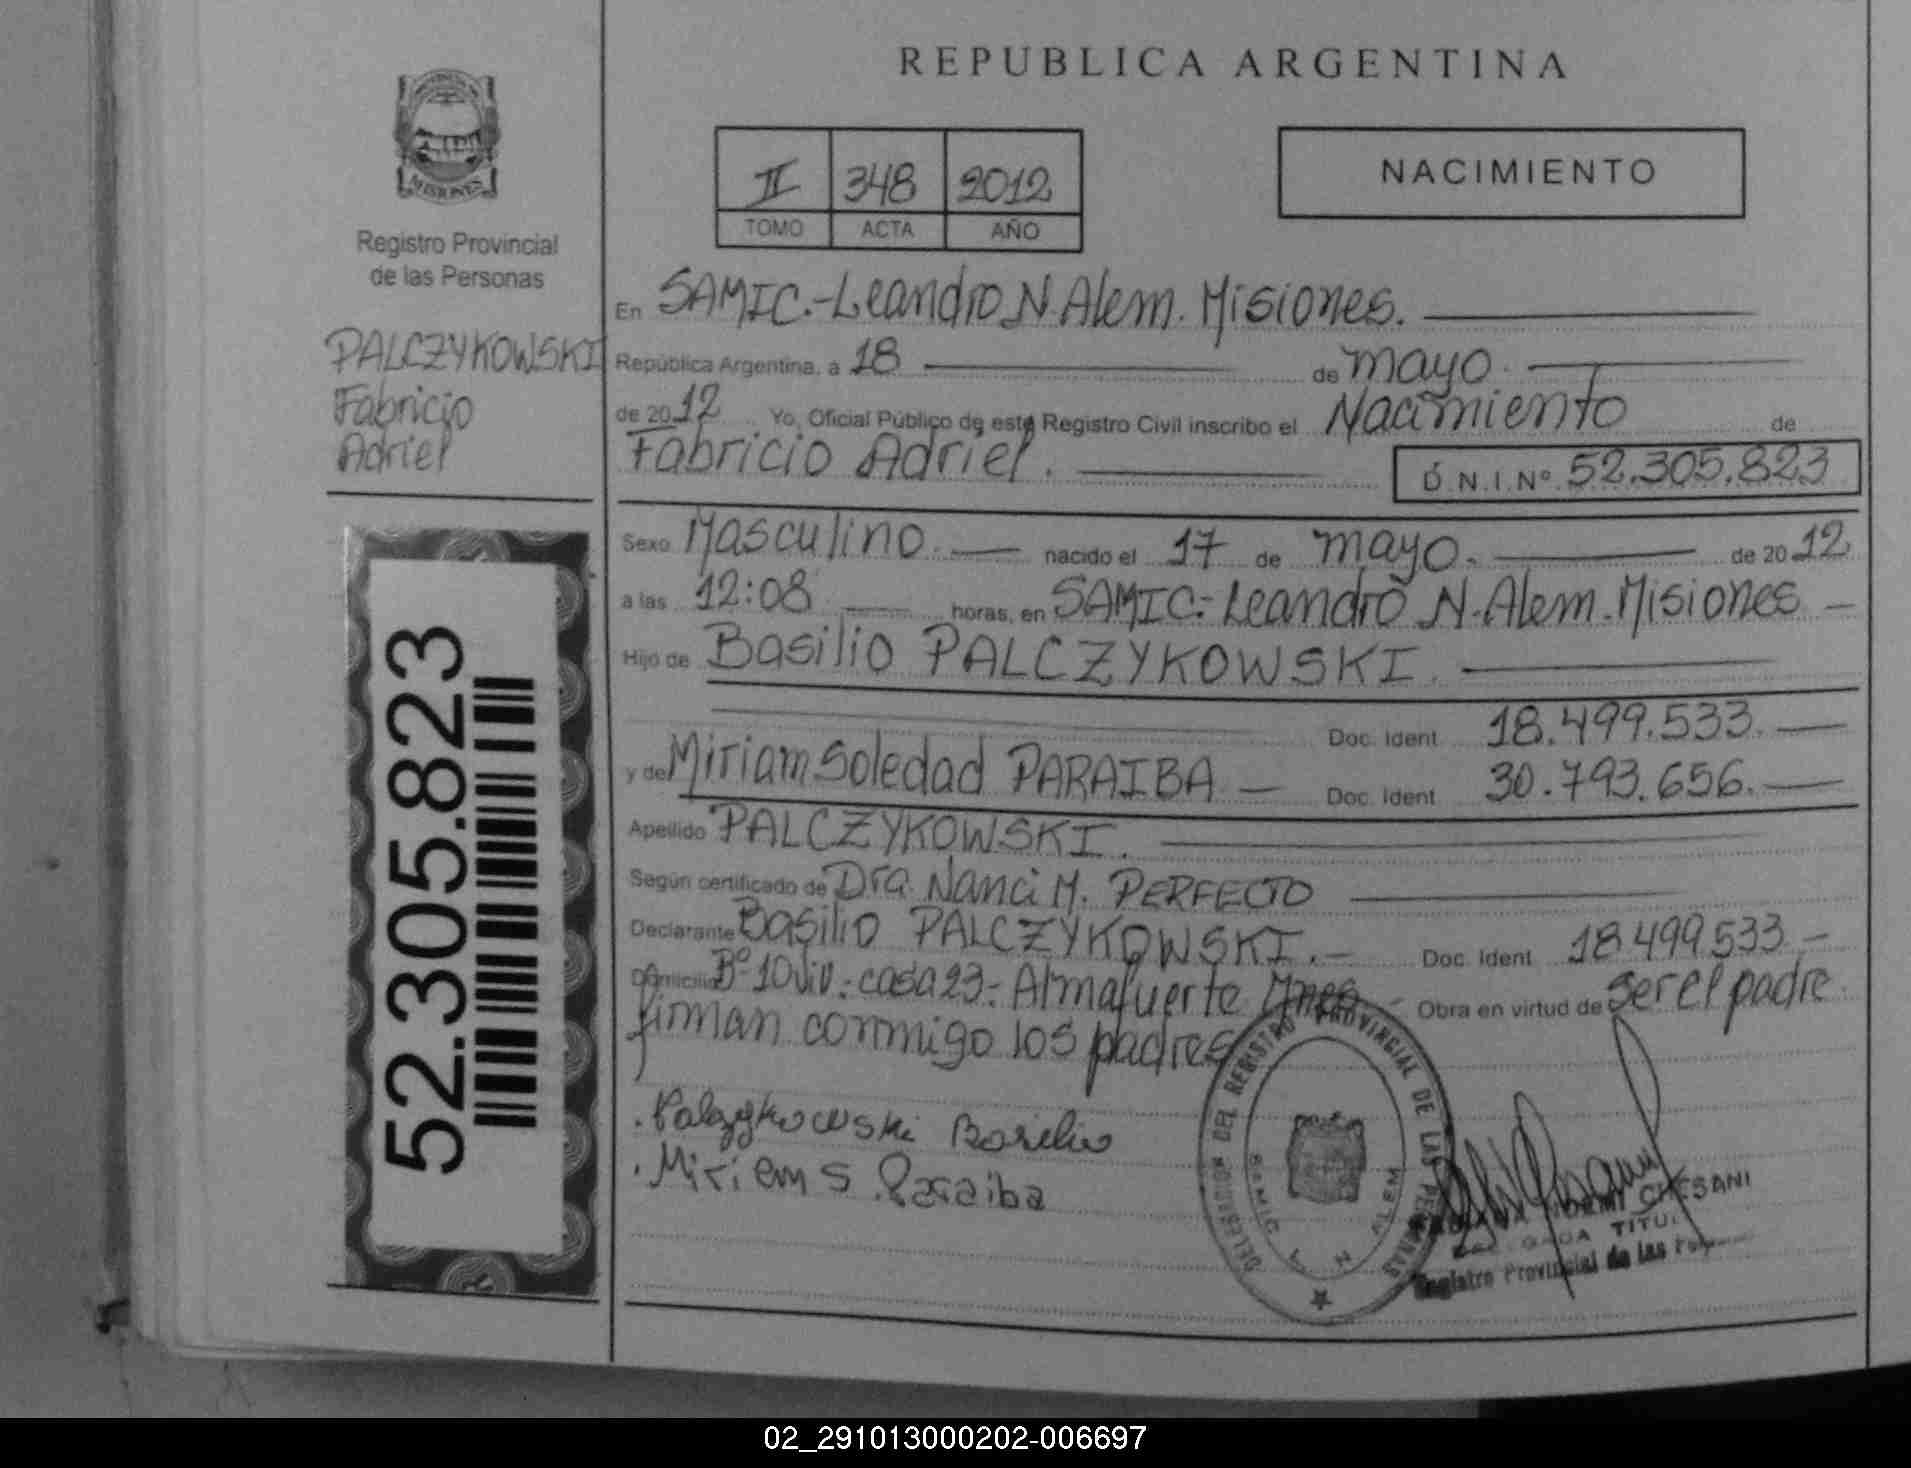 REPUBLICA ARGENTINA
II 348 2012
TOMO ACTA AÑO
NACIMIENTO
MISIONES
Registro Provincial
de las Personas
PALCZYKOWSKI
Fabricio
Adriel
52.305.823
En SAMIC.-Leandro N. Alem. Misiones.
República Argentina, a 18 de mayo.
de 2012 Yo, Oficial Público de este Registro Civil inscribo el Nacimiento de
Fabricio Adriel. D.N.I.Nº 52.305.823
Sexo Masculino. nacido el 17 de mayo. de 2012
a las 12:08 horas, en SAMIC.-Leandro N. Alem. Misiones
Hijo de Basilio PALCZYKOWSKI.
Doc. Ident 18.499.533.
y de Miriam Soledad PARAIBA Doc. Ident 30.793.656.
Apellido PALCZYKOWSKI.
Según certificado de Dra. Nanci M. PERFECTO
Declarante Basilio PALCZYKOWSKI. Doc. Ident 18.499.533
Domicilio Bº-10 viv.-casa 23-Almafuerte Mnes Obra en virtud de ser el padre.
firman conmigo los padres
Palczykowski Basilio
Miriam S. Paraiba
DELEGACION DEL REGISTRO PROVINCIAL DE LAS PERSONAS
SAMIC L N ALEM
NOEMI CHESANI
DELEGADA TITUL
Registro Provincial de las
02_291013000202-006697